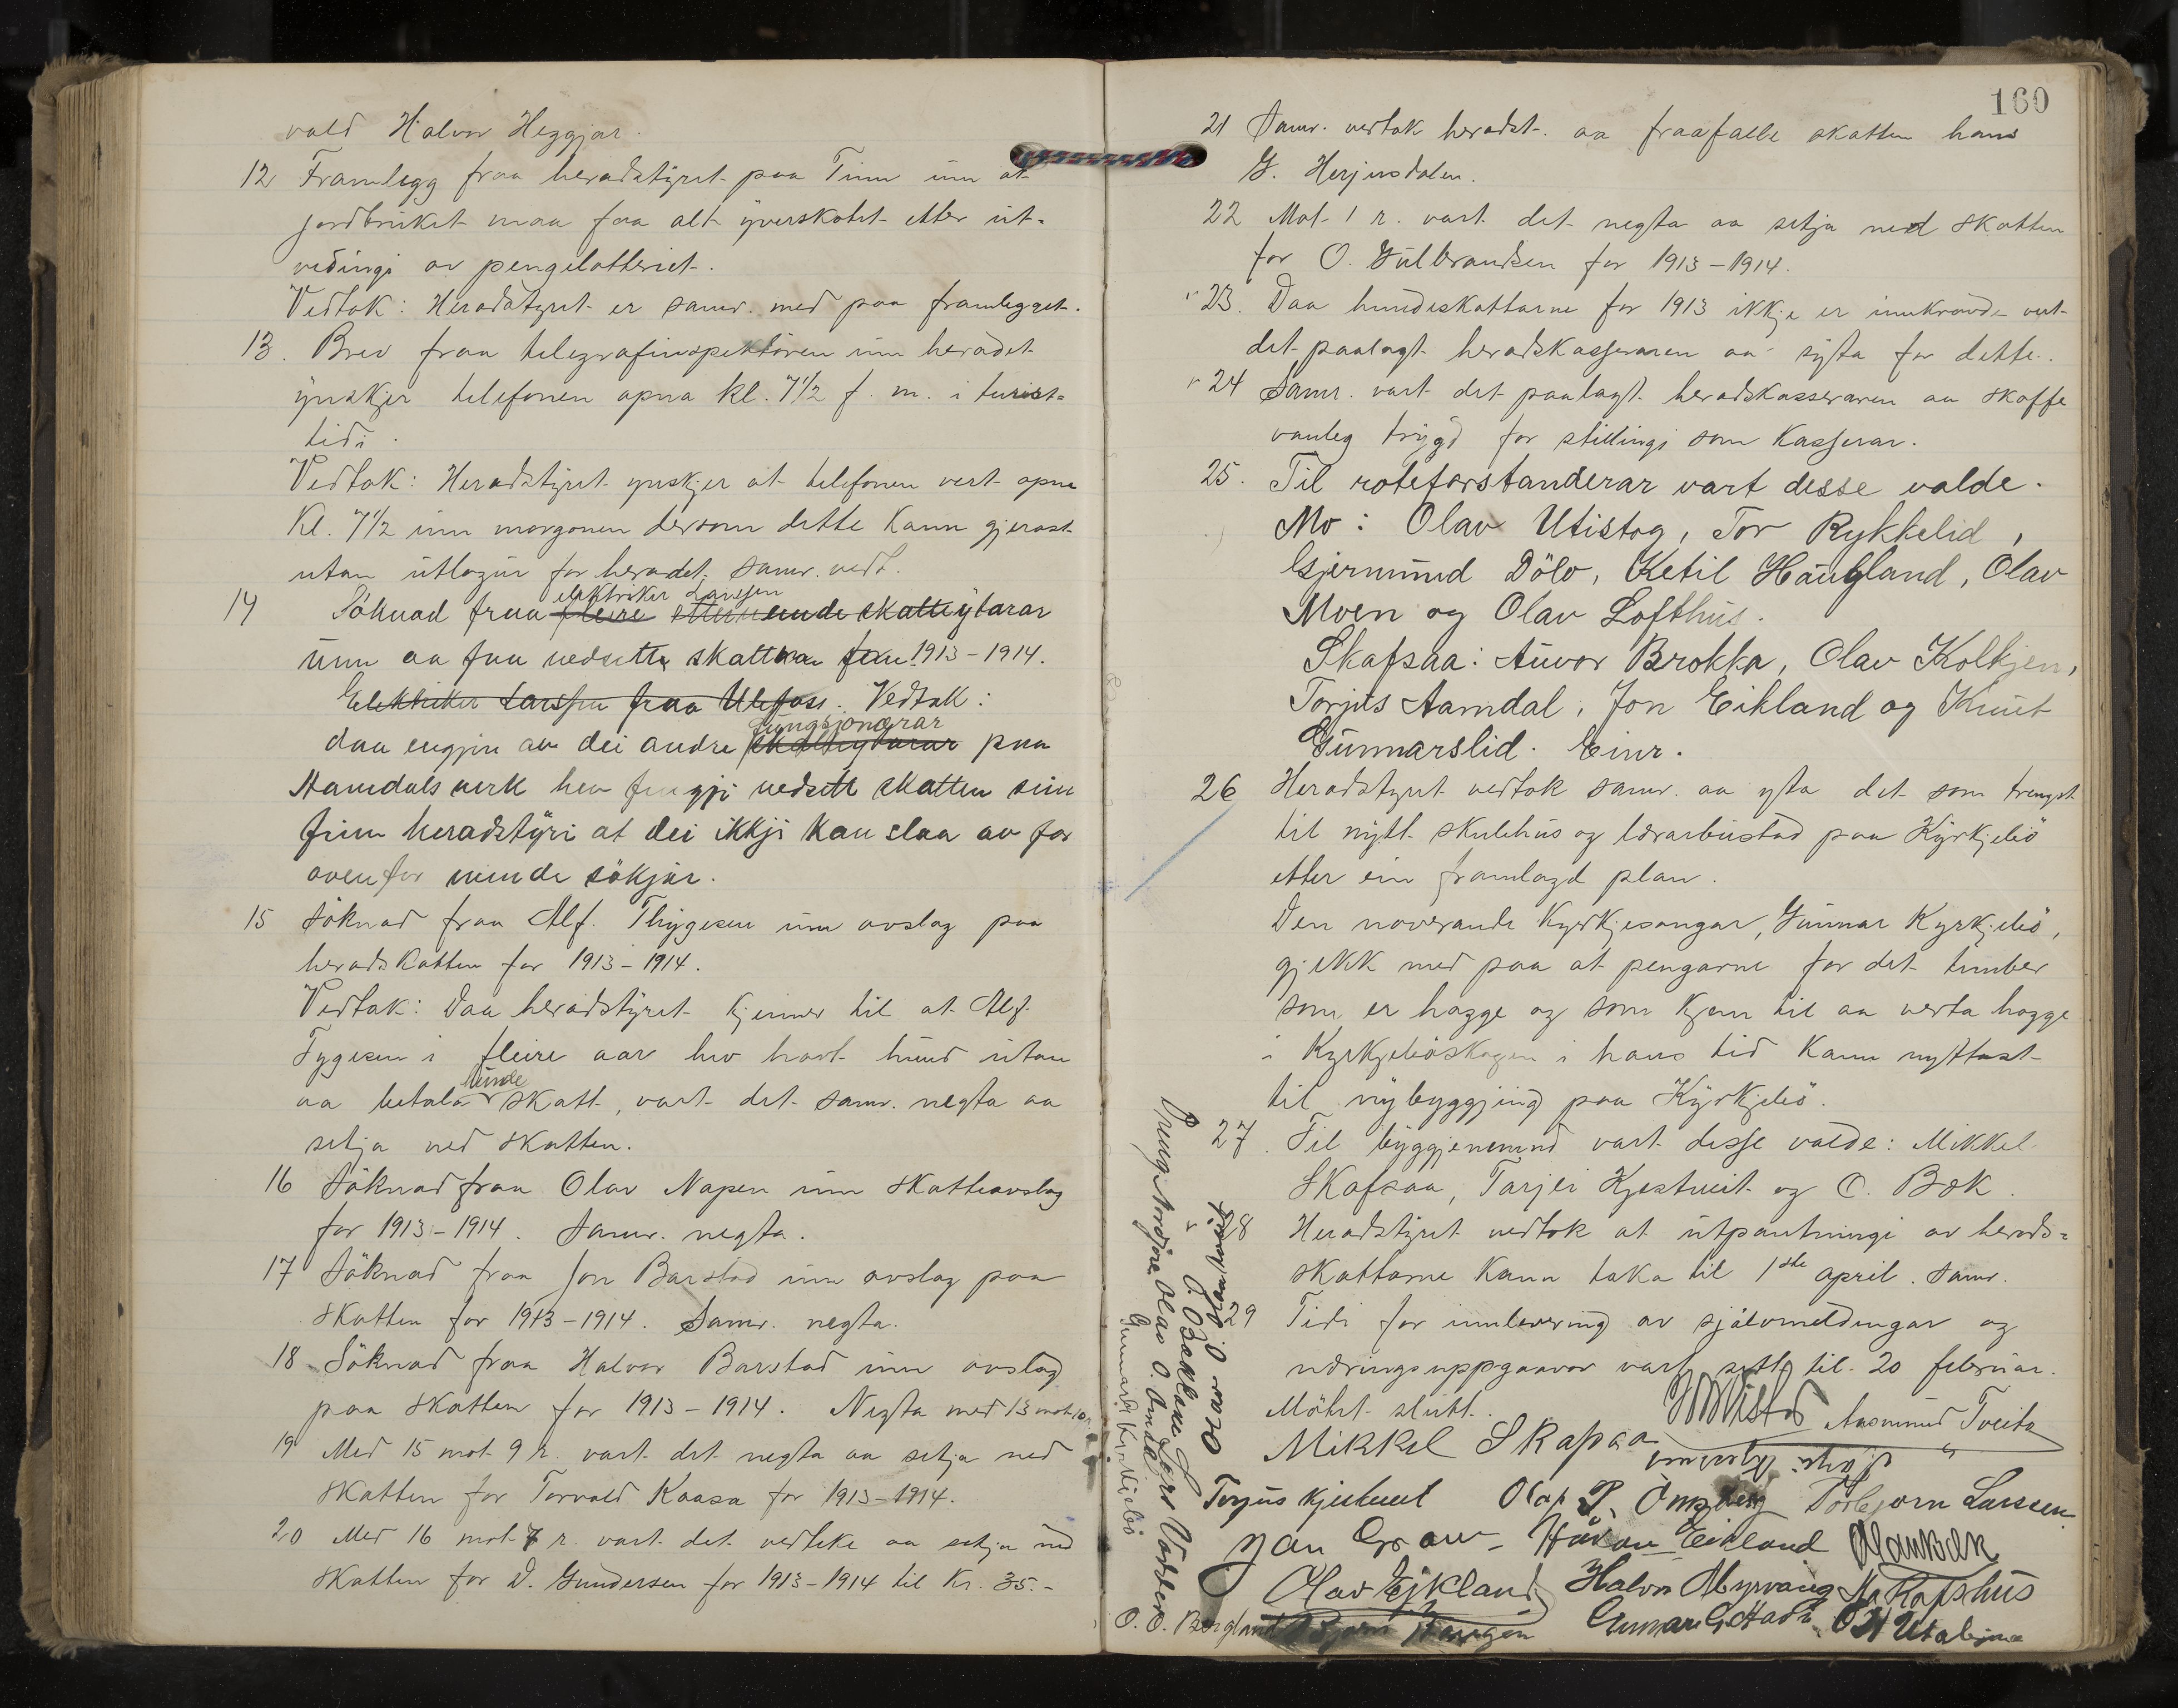 vald Halvor Heggjar.
12 Framlegg fraa heradstyret paa Tinn um at
jordbruket maa faa alt yverskotet etter ut-
reidingi av pengelotteriet.
Vedtak: Heradstyret er samr. med paa framlegget.
13. Brev fraa telegrafinspektören um heradet
ynskjer telefonen opna kl. 7½ f. m. i turist-
tidi.
Vedtak: Heradstyret ynskjer at telefonen vert opna
Kl. 7½ um morgonen dersom dette kann gjerast
utan utlogur for heradet. samr. vedt.
elektriker Larssen
14 Söknad fraa fleire skatteytarar
um aa faa nedsett skatten for 1913-1914.
Elektriker Larssen fraa Ulefoss. Vedtak:
fungsjonærar
daa engjin av dei andre skatteytarar paa
Aamdals verk hev fengji nedsett skatten sin
finn heradstyri at dei ikkji kan slaa av for
ovenfor nemnde sökjar.
15 Söknad fraa Alf. Thygesen um avslag paa
heradskatten for 1913-1914.
Vedtak: Daa heradstyret kjenner til at Alf.
Tygesen i fleire aar hev havt hund utan
hunde
aa betala skatt, vart det samr. negta aa
setja ned skatten.
16 Söknad fraa Olav Napen um skatteavslag
for 1913-1914. Samr. negta.
17 Söknad fraa Jon Barstad um avslag paa
skatten for 1913-1914. Samr. negta.
18 Söknad fraa Halvor Barstad um avslag
paa skatten for 1913-1914. Negta med 13 mot 10 r.
19 Med 15 mot 9 r. vart det negta aa setja ned
skatten for Torvald Kaasa for 1913-1914.
20 Med 16 mot 7 r. vart det vedteke aa setja ned
skatten for D. Gundersen for 1913-1914 til Kr. 35.-
160
21 Samr. vedtok heradst. aa fraafalle skatten hans
G. Herjusdalen.
22 Mot 1 r. vart det negta aa setja ned skatten
for O. Gulbrandsen for 1913-1914.
23. Daa hundeskattarne for 1913 ikkje er innkravde vert
det paalagt heradskasseraren aa syta for dette.
24 Samr. vart det paalagt heradskasseraren aa skaffe
vanleg trygd for stillingi som kasserar.
25. Til roteforstanderar vart desse valde.
Mo: Olav Utistog, Tor Rykkelid,
Gjermund Dölo, Ketil Haugland, Olav
Moen og Olav Lofthus.
Skafsaa: Auvor Brokka, Olav Kolkjen,
Torjus Aamdal, Jon Eikland og Knut
Gunnarslid. Einr.
26 Heradstyret vedtok samr. aa yta det som trengst
til nytt skulehus og lærarbustad paa Kyrkjebö
etter ein framlagd plan.
Den noverande Kyrkjesongar, Gunnar Kyrkjebö,
gjekk med paa at pengarne for det timber
som er hogge og som kjem til aa verta hogge
i Kyrkjeböskogen i hans tid kann nyttast
til nybyggjing paa Kyrkjebö.
27. Til byggjenemnd vart desse valde: Mikkel
Skafsaa, Tarjei Kjestveit og O. Bæk.
28 Heradstyret vedtok at utpantningi av herads-
skattarne kann taka til 1ste april. Samr.
29 Tidi for innlevering av sjölvmeldingar og
næringsuppgaavor vart sett til 20 februar.
Mötet slutt.
Aasmund Tveito
Mikkel Skafsaa
Torjus Kjestveit Olaf P. Omzberg Torbjorn Larssen
Jan Grav Håvan Eikland
Olav Ejkland Halvor Myrvang
O. O. Bergland
Gunnar Kirkjebö